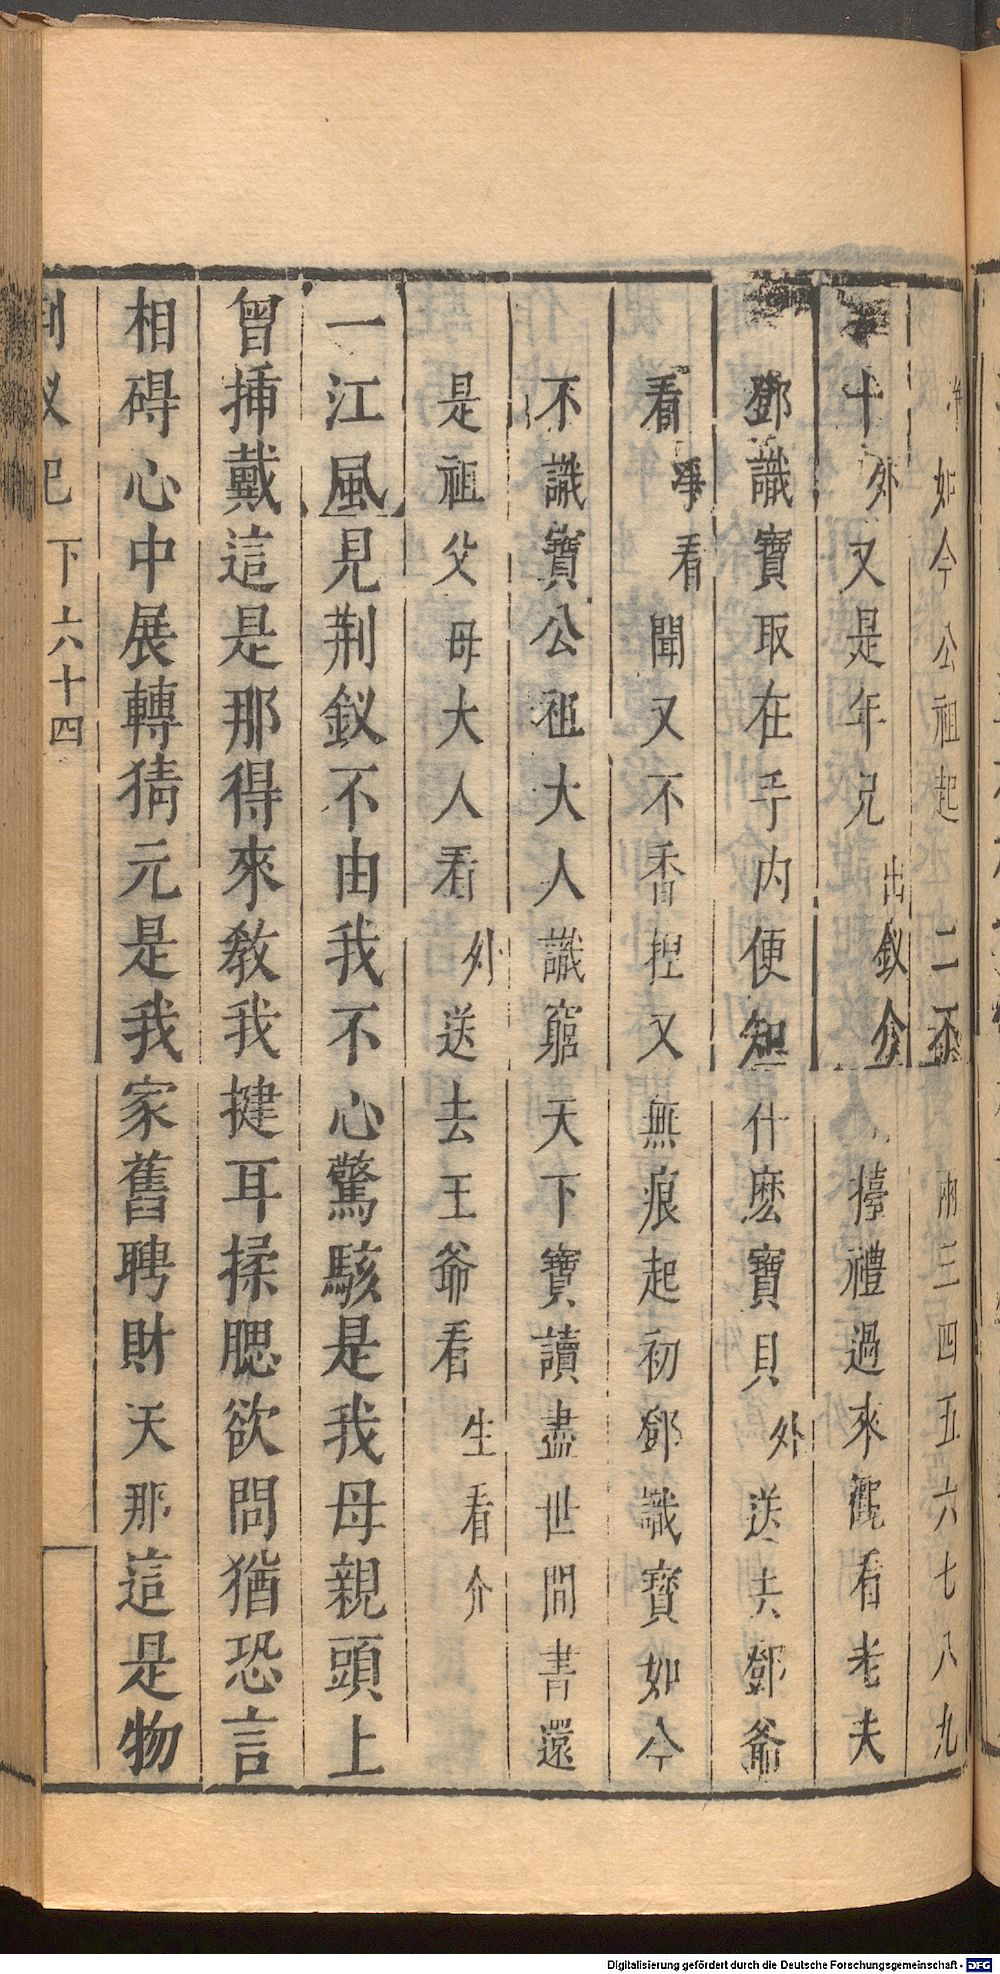 净如今公祖起二不兩三四五六七八九
十外又是年兄出釵介擡禮過來觀看老夫
鄧識寶取在手内便知什麽寳貝外送去鄧爺
看净看聞又不香捏又無痕起初鄧識寶如今
不識寶公祖大人識窮天下寶讀盡世間書還
是祖父母大人看外送去王爺看生看介
一江風見荆釵不由我不心驚駭是我母親頭上
曾揷戴這是那得來教我揵耳揉腮欲問猶恐言
相碍心中展轉猜元是我家舊聘財天那這是物
荆釵記 下 六十四
Digitalisierung gefördert durch die Deutsche Forschungsgemeinschaft - DFG